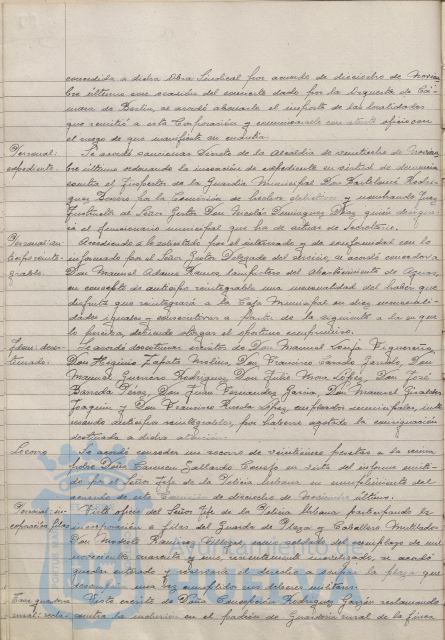 concedida a dicha Obra Sindical por acuerdo de dieciocho de Noviem-
bre último con ocasión del concierto dado por la Orquesta de Cá-
mara de Berlin, se acordó abonarle el importe de las localidades
que remitió a esta Corporación y comunicarle con atento oficio con
el ruego de que manifieste su
Personal: Se acordó sancionar Decreto de la Alcaldía de veintiocho de Noviem-
expediente. bre último ordenando la incoación de expediente en virtud de denuncia
contra el Inspector de la Guardia Municipal Don Bartolomé Rodrí-
guez por la comisión de hechos y nombrando Juez
Instructor al Señor Gestor Don Nicolás Dominguez Diaz quien designa-
rá el funcionario municipal que ha de actuar de Secretario.
Personal: an- Accediendo a lo solicitado por el interesado y de conformidad con lo
ticipo reinte- informado por el Señor Gestor Delegado del servicio, se acordó conceder a
grable. Don Manuel Adame Ramos del Abastecimiento de Aguas,
en concepto de anticipo reintegrable una mensualidad del haber que
disfruta que reintegrará a la Caja Municipal en diez mensualida-
dades iguales y consecutivas a partir de la siguiente a la en que
la perciba, debiendo otorgar el oportuno compromiso.
Idem: deses- Se acordó desestimar escrito de Don Manuel Figuereño,
timado. Don Higinio Zapata Molina, Don Francisco
Manuel Guerrero Rodríguez, Don Julio Mora López, Don José
Barroda Pérez, Don Juan Fernandez Garcia, Don Manuel Giraldez
Joaquin y Don Francisco Rueda López, empleados municipales, inte-
resando anticipos reintegrables, por haberse agotado la consignación
destinada a dicha atención.
Socorro Se acordó conceder un socorro de veinticinco pesetas a la vecina
pobre Doña Carmen Gallardo en vista del informe emiti-
do por el Señor Jefe de la Policia Urbana en cumplimiento del
acuerdo de esta Comisión de dieciocho de Noviembre último.
Personal: in- Visto oficio del Señor Jefe de la Policia Urbana participando la
corporación filas incorporación a filas del Guarda de Plaza y Caballero Mutilado
Don Modesto Ramirez Villegas, como soldado del reemplazo de mil
novecientos cuarenta y uno, recientemente movilizado, se acordó
quedar enterado y reservarle el derecho a ocupar la plaza que
desempeña una vez cumplidos sus deberes militares.
Visto escrito de Doña Concepción Rodriguez Garzón reclamando
contra la inclusión en el padrón de Guardería rural de la finca